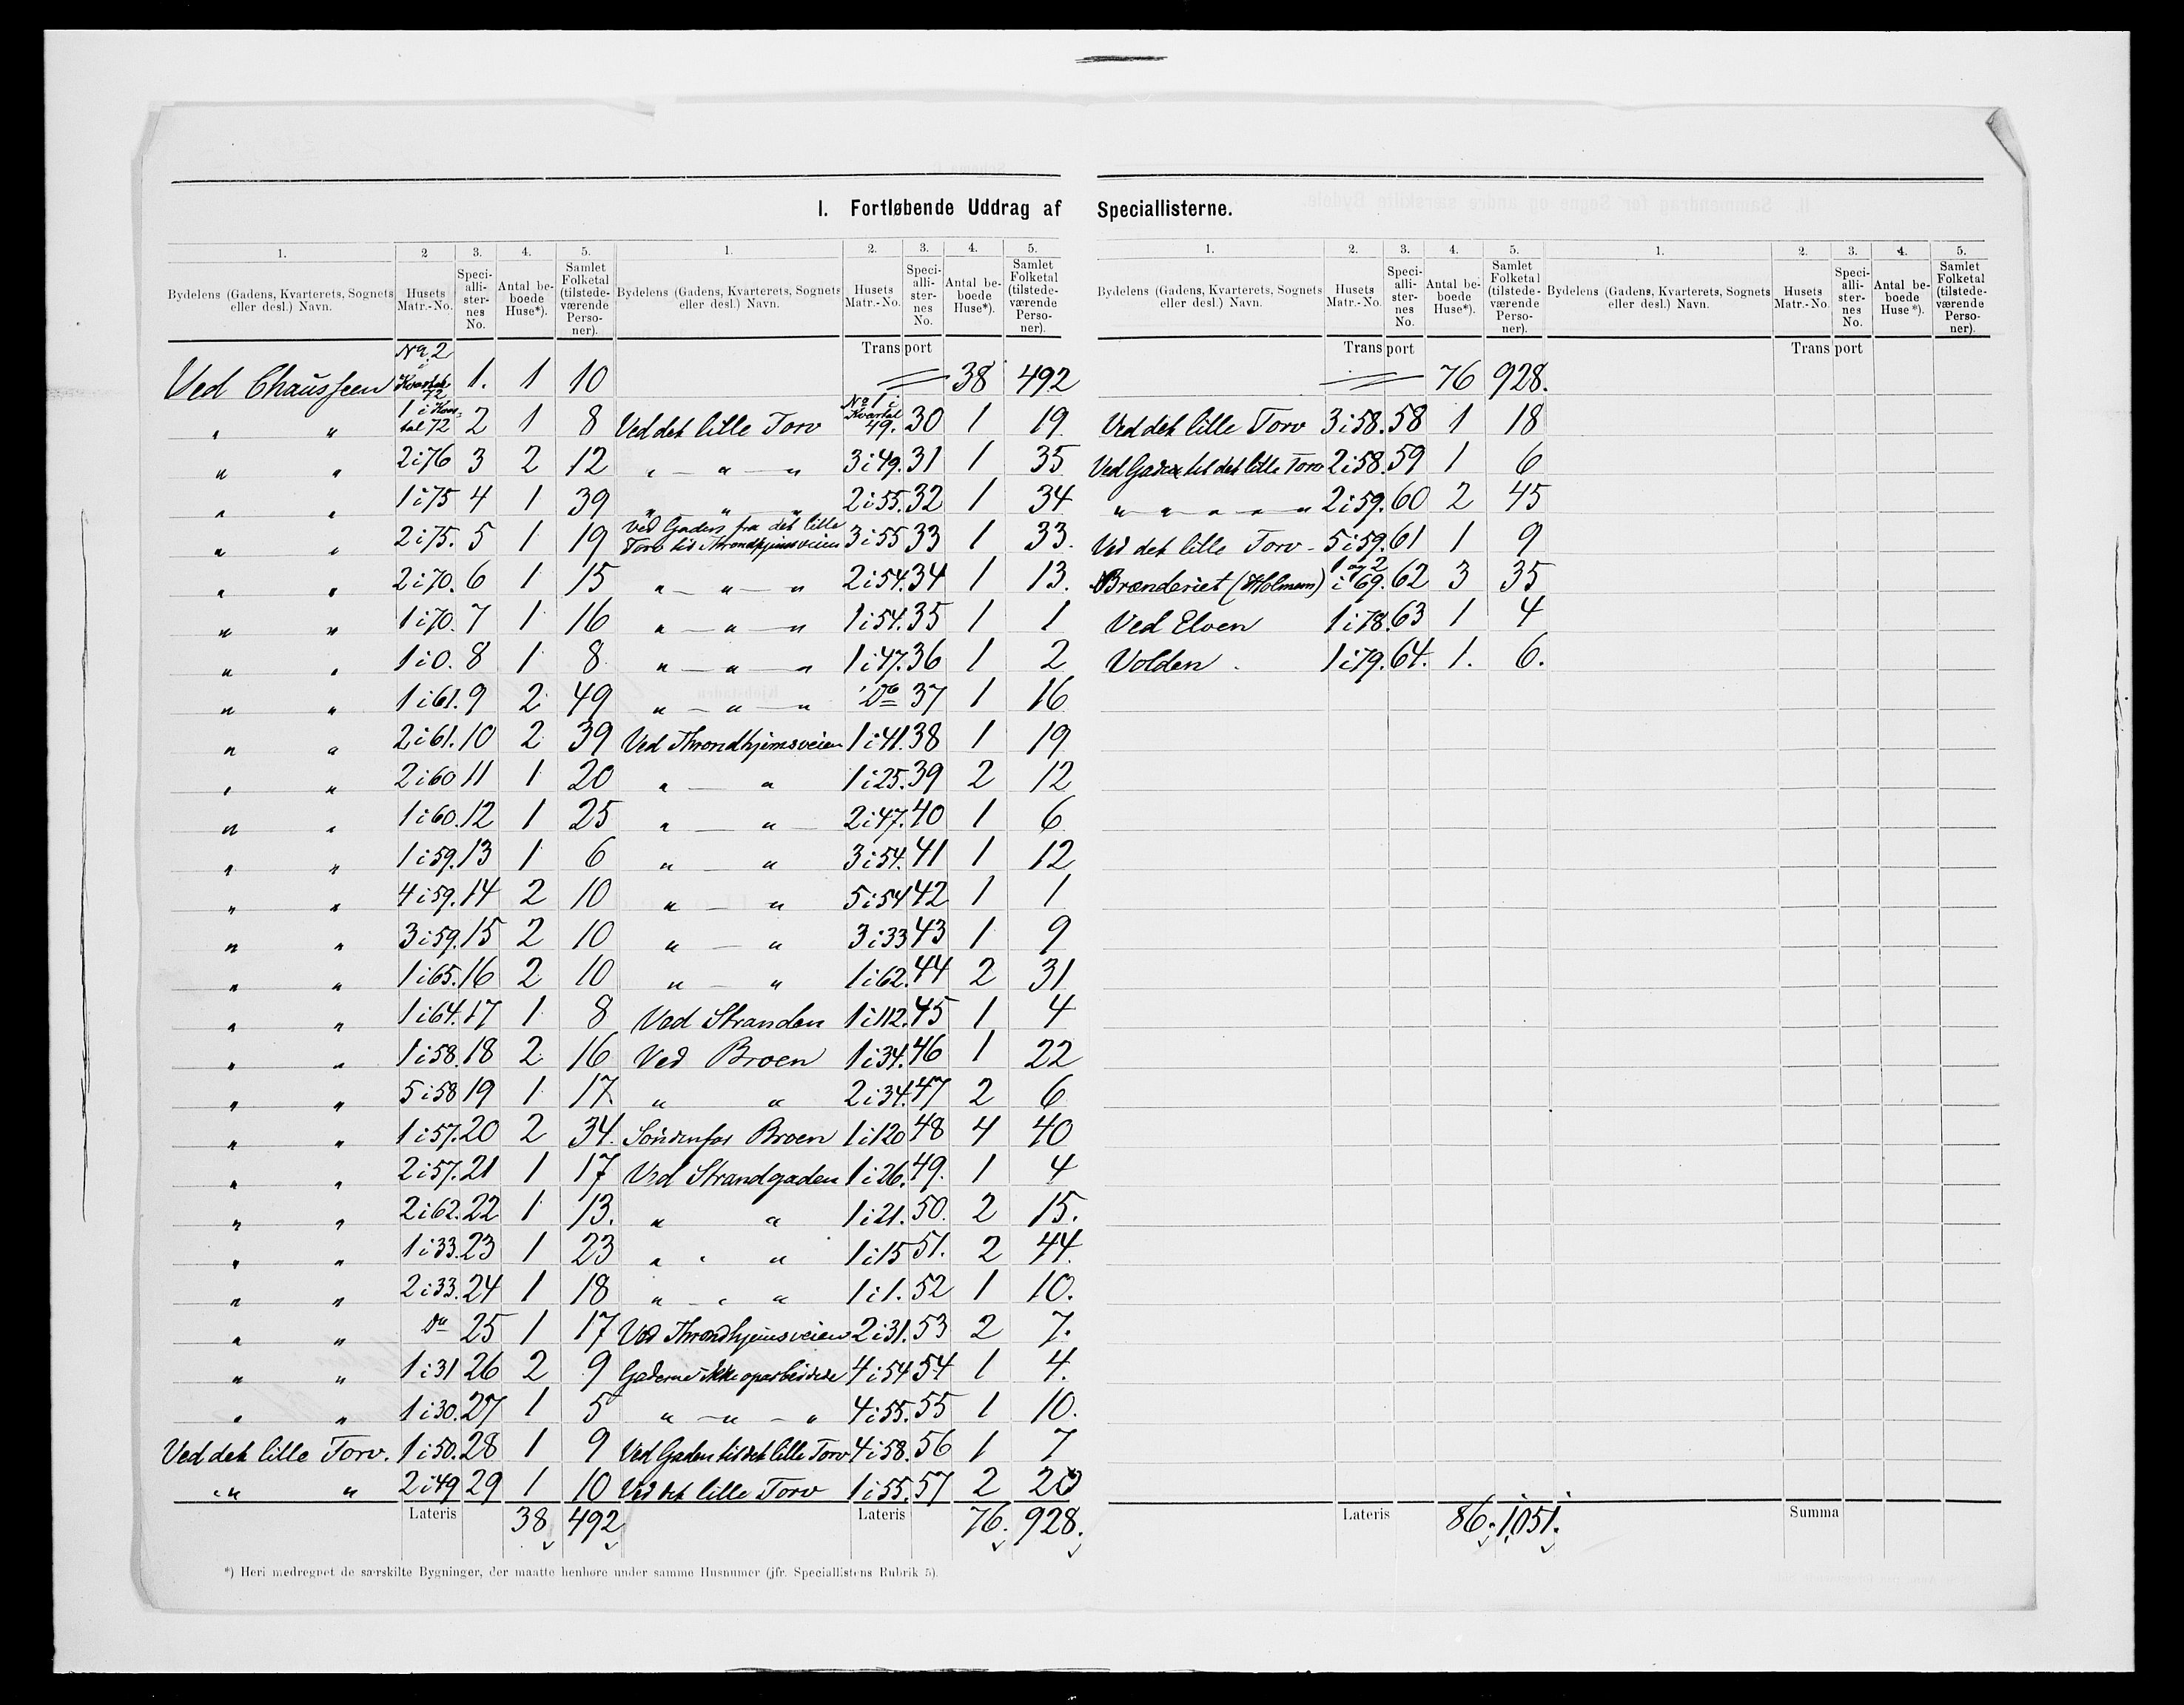 I. Fortløbende Uddrag af Speciallisterne.
1. 2 3. 4. 5. 1. 2. 3. 4. 5. 1. 2. 3. 4. 5. 1. 2. 3. 4. 5.
Bydelens (Gadens, Kvarterets, Sognets eller desl.) Navn. Husets Matr.-No. Speci-alli-ster-nes No. Antal be-boede Huse*). Samlet Folketal (tilstede-værende Perso-ner).
Bydelens (Gadens, Kvarterets, Sognets eller desl.) Navn. Husets Matr.-No. Speci-alli-ster-nes No. Antal be-boede Huse*). Samlet Folketal (tilstede-værende Perso-ner).
Bydelens (Gadens, Kvarterets, Sognets eller desl.) Navn. Husets Matr.-No. Speci-alli-ster-nes No. Antal be-boede Huse*). Samlet Folketal (tilstede-værende Perso-ner).
Bydelens (Gadens, Kvarterets, Sognets eller desl.) Navn. Husets Matr.-No. Speci-alli-ster-nes No. Antal be-boede Huse*). Samlet Folketal (tilstede-værende Perso-ner).
Ved Chausseen No 2 i Kvartal 72 1. 1 10
" " 1 i Kvar-tal 72 2 1 8
" " 2 i 76 3 2 12
" " 1 i 75 4 1 39
" " 2 i 75. 5 1 19
" " 2 i 70. 6 1 15
" " 1 i 70. 7 1 16
" " 1 i 0. 8 1 8
" " 1 i 61. 9 2 49
" " 2 i 61. 10 2 39
" " 2 i 60 11 1 20
" " 1 i 60. 12 1 25
" " 1 i 59. 13 1 6
" " 4 i 59. 14 2 10
" " 3 i 59. 15 2 10
" " 1 i 65. 16 2 10
" " 1 i 64. 17 1 8
" " 1 i 58. 18 2 16
" " 5 i 58 19 1 17
" " 1 i 57. 20 2 34.
" " 2 i 57. 21 1 17
" " 2 i 62. 22 1 13.
" " 1 i 33. 23 1 23
" " 2 i 33. 24 1 18
" " Do 25 1 17
" " 1 i 31 26 2 9
" " 1 i 30. 27 1 5
Ved det lille Torv. 1 i 50. 28 1 9
" " 2 i 49 29 1 10
Lateris 38 492
Transport 38 492
Ved det lille Torv No 1 i Kvartal 49. 30 1 19
" " " 3 i 49. 31 1 35
" " " 2 i 55. 32 1 34
Ved Gaden fra det lille Torv til Throndhjemsveien 3 i 55 33 1 33.
" " " 2 i 54. 34 1 13.
" " " 1 i 54. 35 1 1
" " " 1 i 47. 36 1 2
" " " Do 37 1 16
Ved Throndhjemsveien 1 i 41. 38 1 19
" " 1 i 25. 39 2 12
" " 2 i 47. 40 1 6
" " 3 i 54. 41 1 12
" " 5 i 54 42 1 1
" " 3 i 33 43 1 9
" " 1 i 62. 44 2 31
Ved Stranden 1 i 112. 45 1 4
Ved Broen 1 i 34. 46 1 22
" " 2 i 34. 47 2 6
Söndenfor Broen 1 i 120 48 4 40
Ved Strandgaden 1 i 26. 49. 1 4
" " 1 i 21. 50. 2 15.
" " 1 i 15 51. 2 44.
" " 1 i 1. 52 1 10.
Ved Throndhjemsveien 2 i 31. 53 2 7.
Gaderne ikke oparbeidede 4 i 54 54 1 4.
" " " 4 i 55. 55 1 10.
Ved Gaden til det lille Torv 4 i 58. 56 1 7
Ved det lille Torv 1 i 55. 57 2 20
Lateris 76. 928.
Transport 76 928.
Ved det lille Torv 3 i 58. 58 1 18
Ved Gaden til det lille Torv 2 i 58. 59 1 6
" " " " " 2 i 59. 60 2 45
Ved det lille Torv - 5 i 59. 61 1 9
Brænderiet (Holmen) 1 og 2 i 69. 62 3 35
Ved Elven 1 i 78. 63 1 4
Volden. 1 i 79. 64. 1. 6.
Lateris 86. 1,051.
Transport
Summa
*) Heri medregnet de særskilte Bygninger, der maatte henhøre under samme Husnumer (jfr. Speciallistens Rubrik 5).